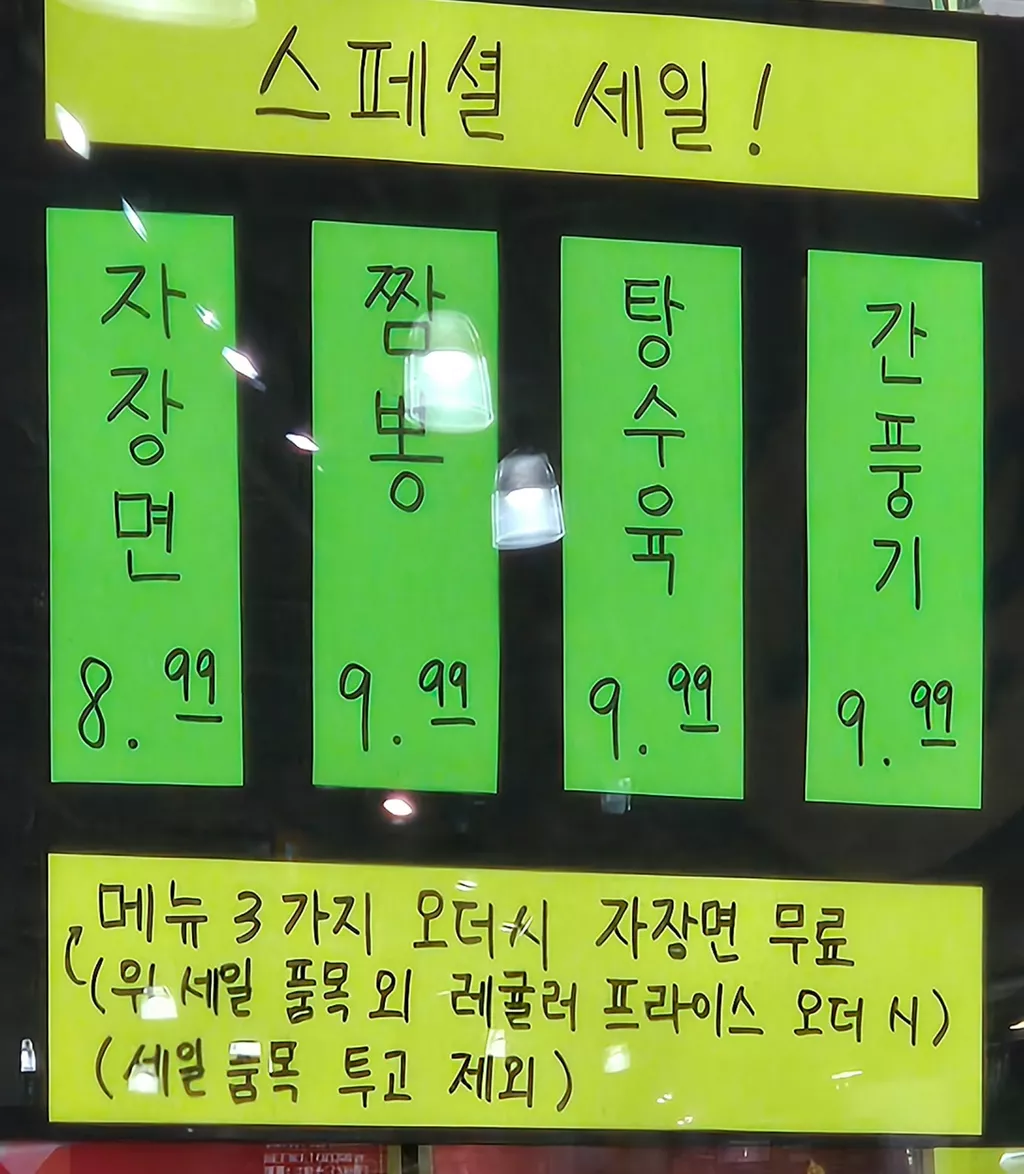 스페셜 세일!
자장면
8.99
짬뽕
9.99
탕수육
9.99
간풍기
9.99
메뉴 3가지 오더시 자장면 무료
(위 세일 품목 외 레귤러 프라이스 오더 시)
(세일 품목 투고 제외)